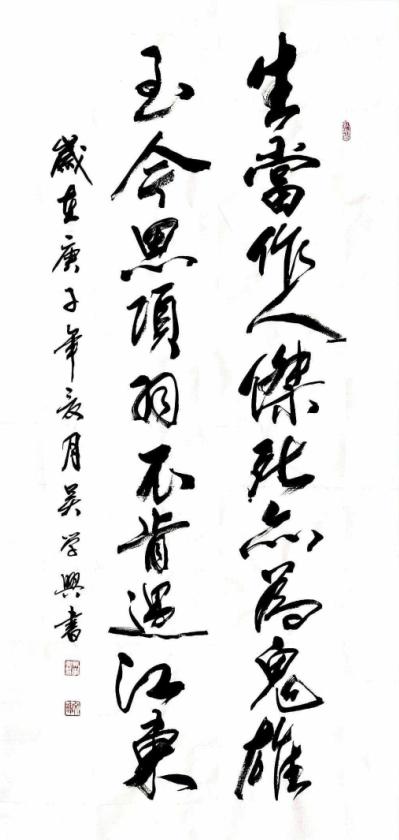 生當作人傑死亦為鬼雄
至今思項羽不肯過江東
歲在庚子年亥月吴学興書